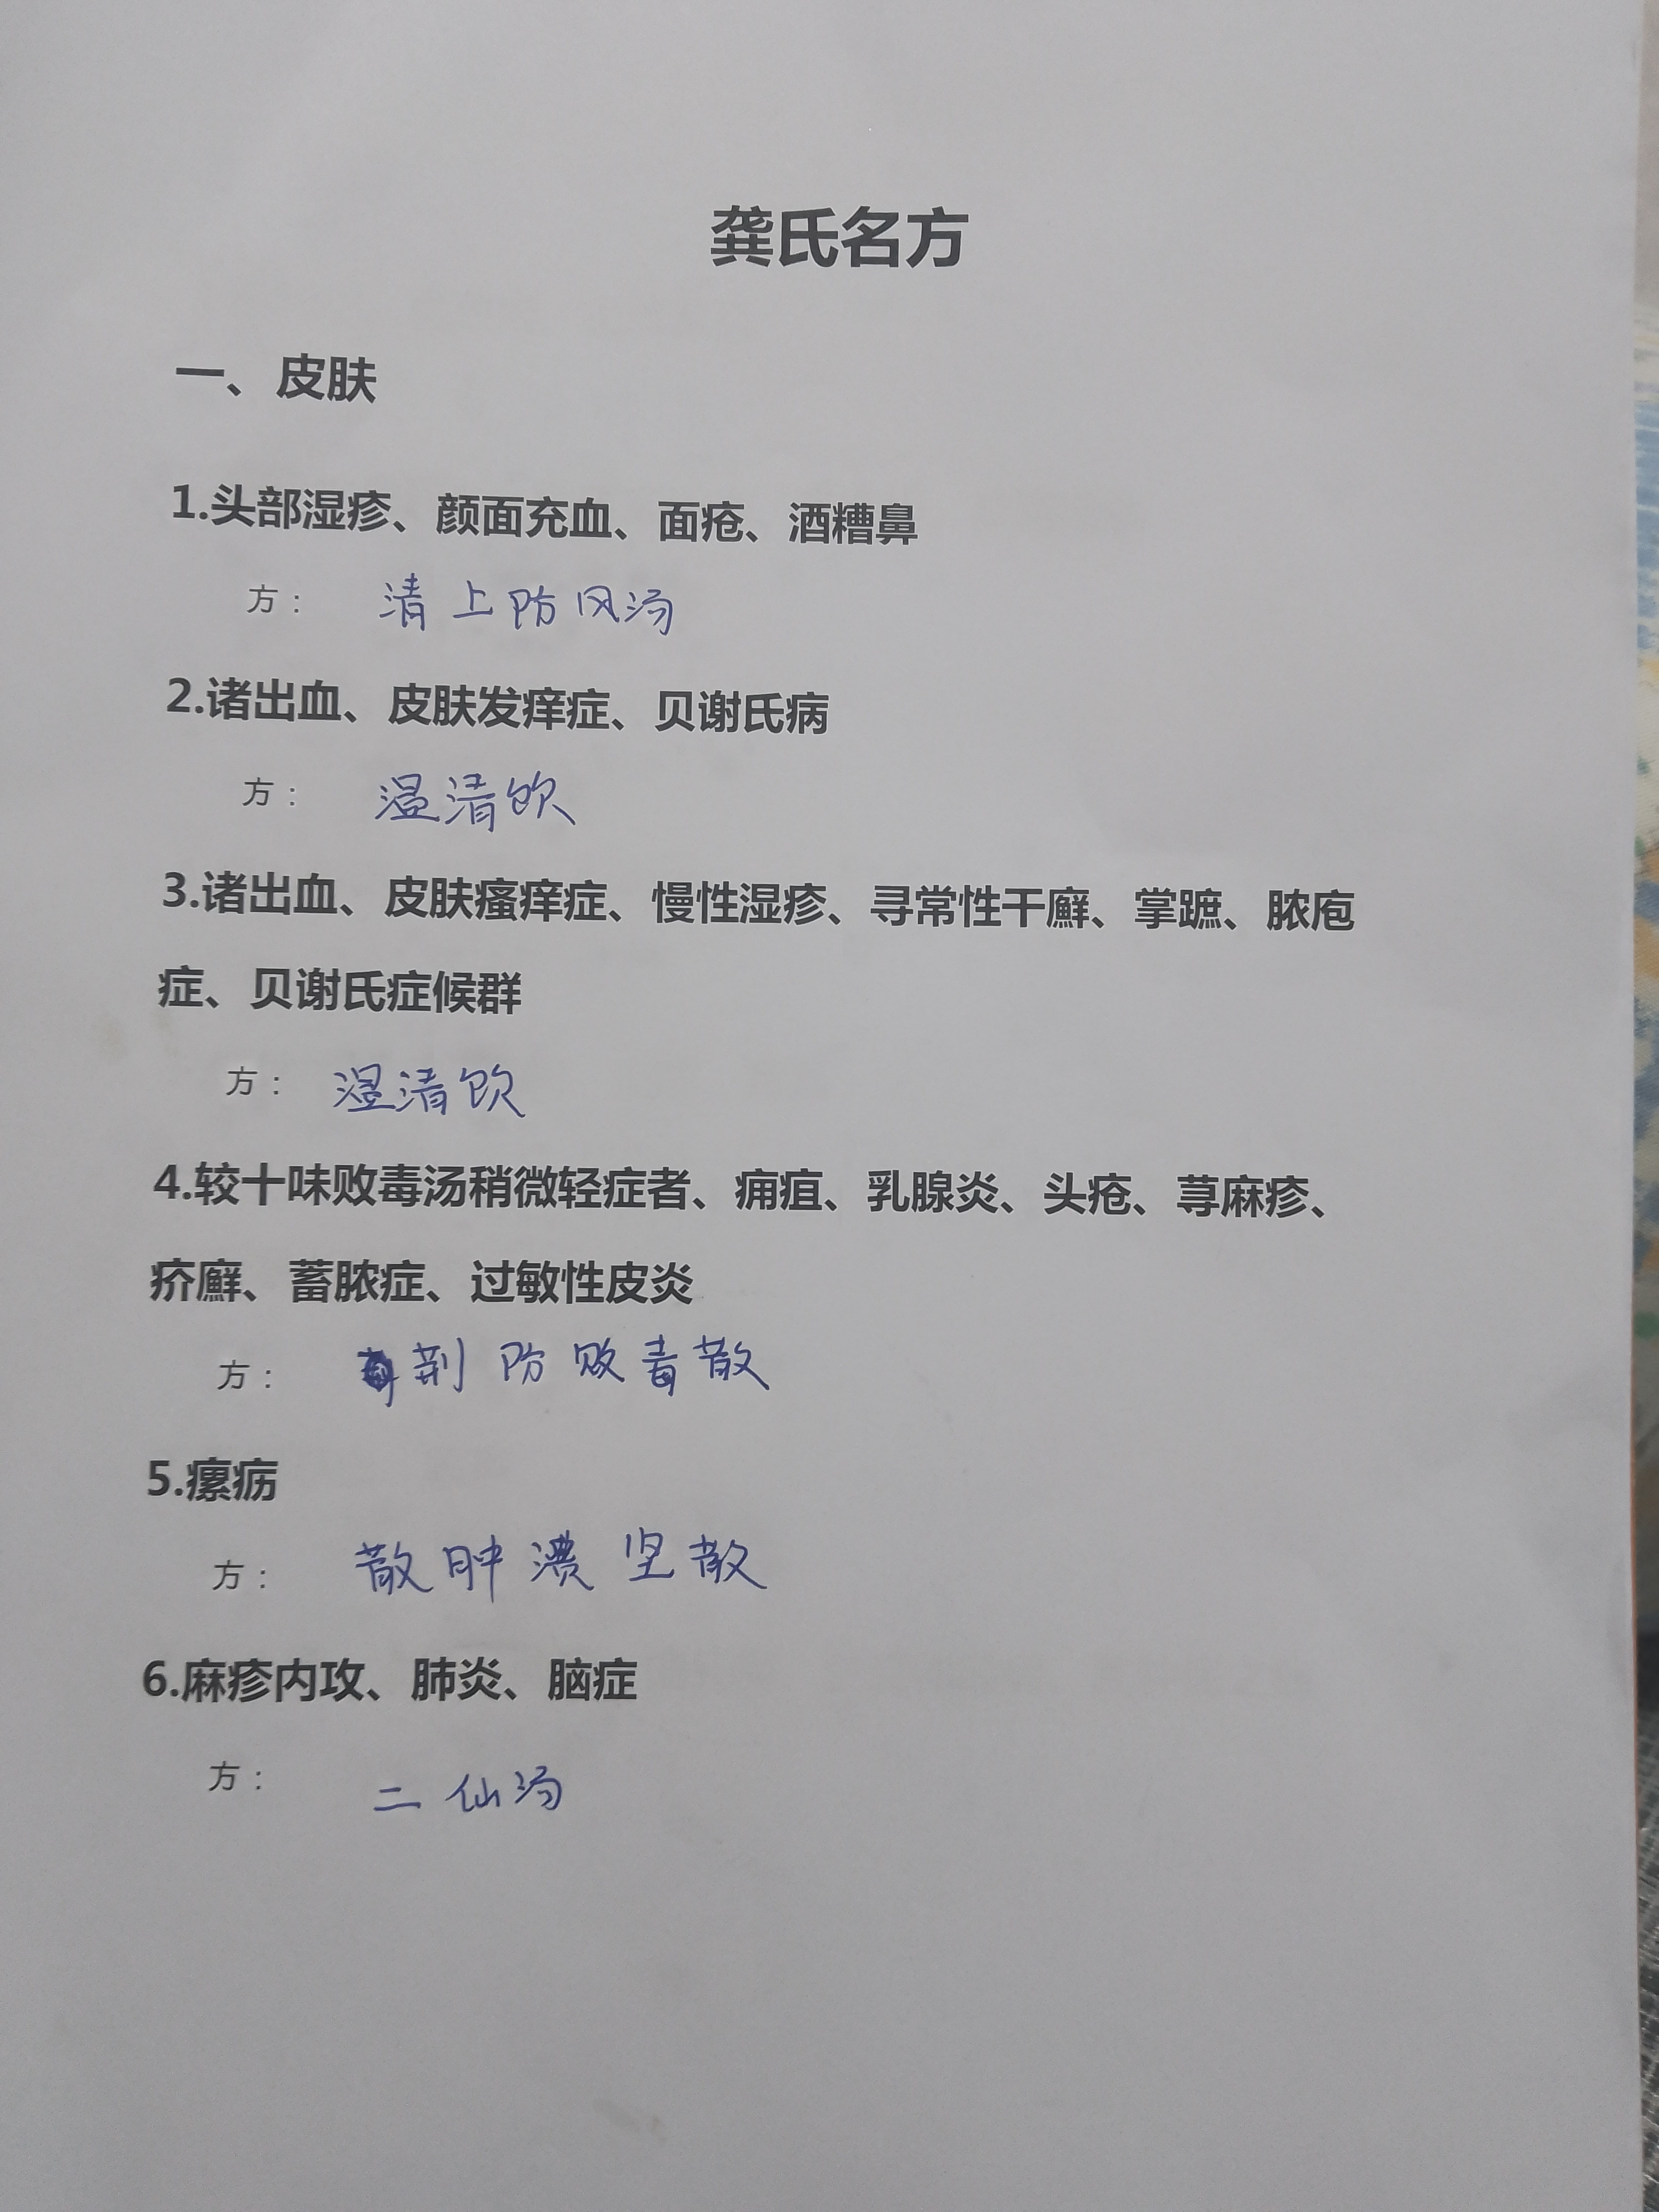 龚氏名方
一、皮肤
1.头部湿疹、颜面充血、面疮、酒糟鼻
方： 清上防风汤
2.诸出血、皮肤发痒症、贝谢氏病
方： 温清饮
3.诸出血、皮肤瘙痒症、慢性湿疹、寻常性干癣、掌蹠、脓庖
症、贝谢氏症候群
方： 温清饮
4.较十味败毒汤稍微轻症者、痈疽、乳腺炎、头疮、荨麻疹、
疥癣、蓄脓症、过敏性皮炎
方： 荆防败毒散
5.瘰疬
方： 散肿溃坚散
6.麻疹内攻、肺炎、脑症
方： 二仙汤